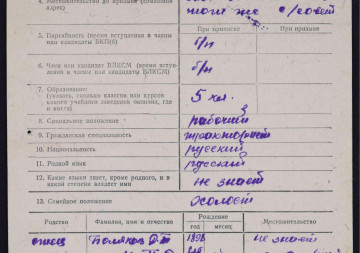 адрес)
того же с/совет
При приписке
При призыве
5. Партийность (время вступления в члены
или кандидаты ВКП(б)
б/п
6. Член или кандидат ВЛКСМ (время вступ-
ления в члены или кандидаты ВЛКСМ)
б/п
7. Образование:
(указать, сколько классов или курсов
какого учебного заведения окончил, где
и когда)
5 кл.
8. Социальное положение
рабочий
9. Гражданская специальность
тракторист
10. Национальность
русский
11. Родной язык
русский
12. Какие языки знает, кроме родного, и в
какой степени владеет ими
не знает
13. Семейное положение
холост
Родство
Фамилия, имя и отчество
Рождение
год
месяц
Местожительство
отец
Поляков
не знает